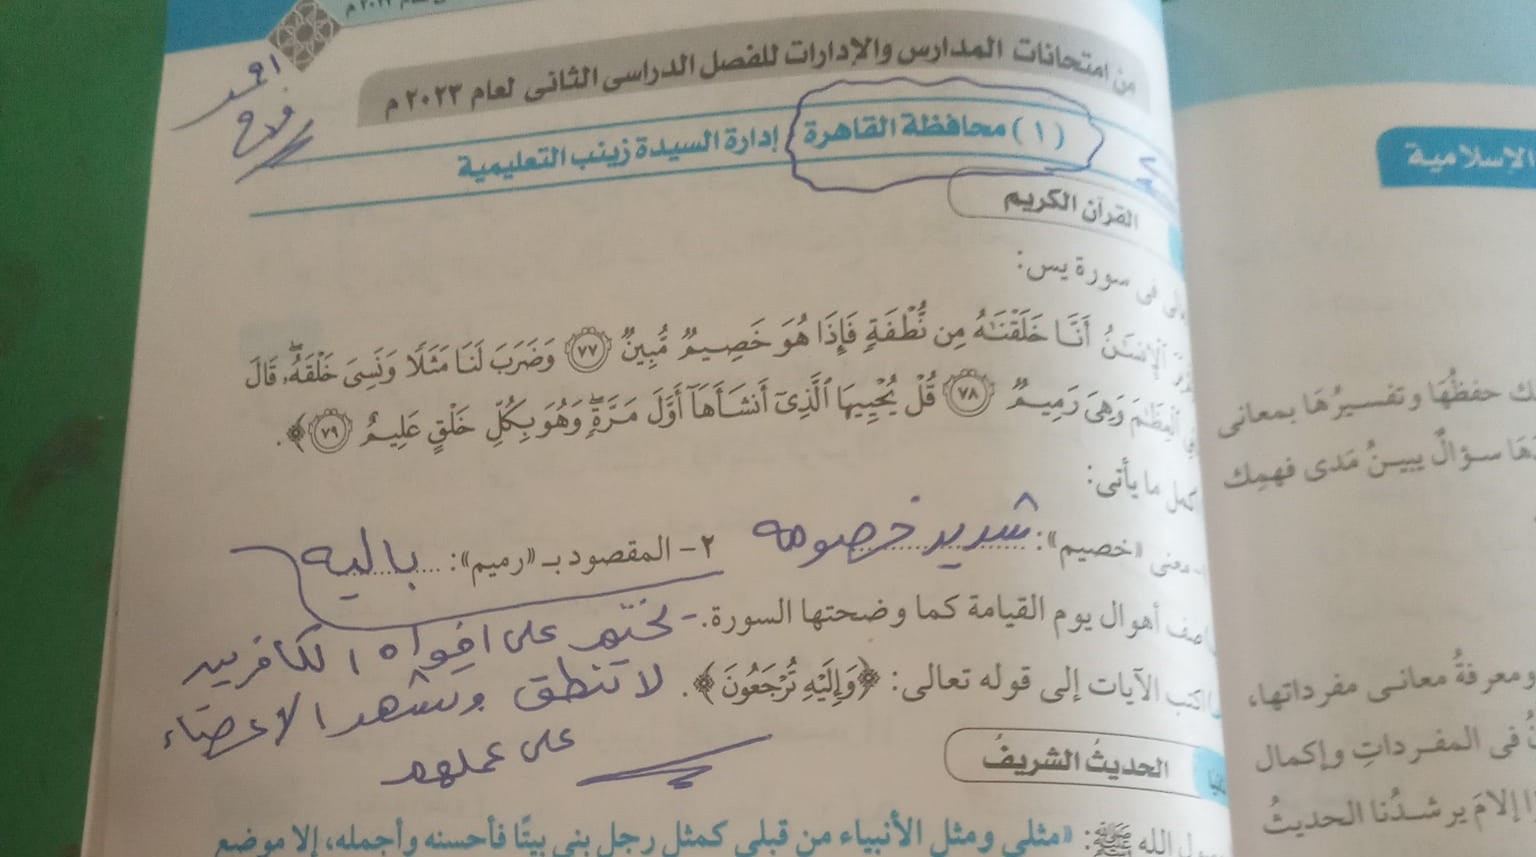 من امتحانات المدارس والإدارات للفصل الدراسى الثانى لعام ٢٠٢٣ م
احمد
فرج
(١) محافظة القاهرة إدارة السيدة زينب التعليمية
القرآن الكريم
فى سورة يس:
ٱلْإِنسَٰنُ أَنَّا خَلَقْنَٰهُ مِن نُّطْفَةٍ فَإِذَا هُوَ خَصِيمٌ مُّبِينٌ ٧٧ وَضَرَبَ لَنَا مَثَلًا وَنَسِىَ خَلْقَهُۥ ۖ قَالَ
ٱلْعِظَٰمَ وَهِىَ رَمِيمٌ ٧٨ قُلْ يُحْيِيهَا ٱلَّذِىٓ أَنشَأَهَآ أَوَّلَ مَرَّةٍ ۖ وَهُوَ بِكُلِّ خَلْقٍ عَلِيمٌ ٧٩ ﴾.
ما يأتى:
معنى «خصيم»: شديد خصومه ٢- المقصود بـ «رميم»: باليه
أهوال يوم القيامة كما وضحتها السورة.- نختم على افواه الكافرين
لا تنطق وتشهد الاعضاء
على عملهم
اكتب الآيات إلى قوله تعالى: ﴿وَإِلَيْهِ تُرْجَعُونَ﴾.
الحديثُ الشريفُ
الله ﷺ: «مثلى ومثل الأنبياء من قبلى كمثل رجل بنى بيتًا فأحسنه وأجمله، إلا موضع
الإسلامية
حفظُهَا وتفسيرُهَا بمعانى
سؤالٌ يبينُ مَدى فهمِك
ومعرفةُ معانى مفرداتها،
فى المفرداتِ وإكمال
إلامَ يرشدُنا الحديثُ